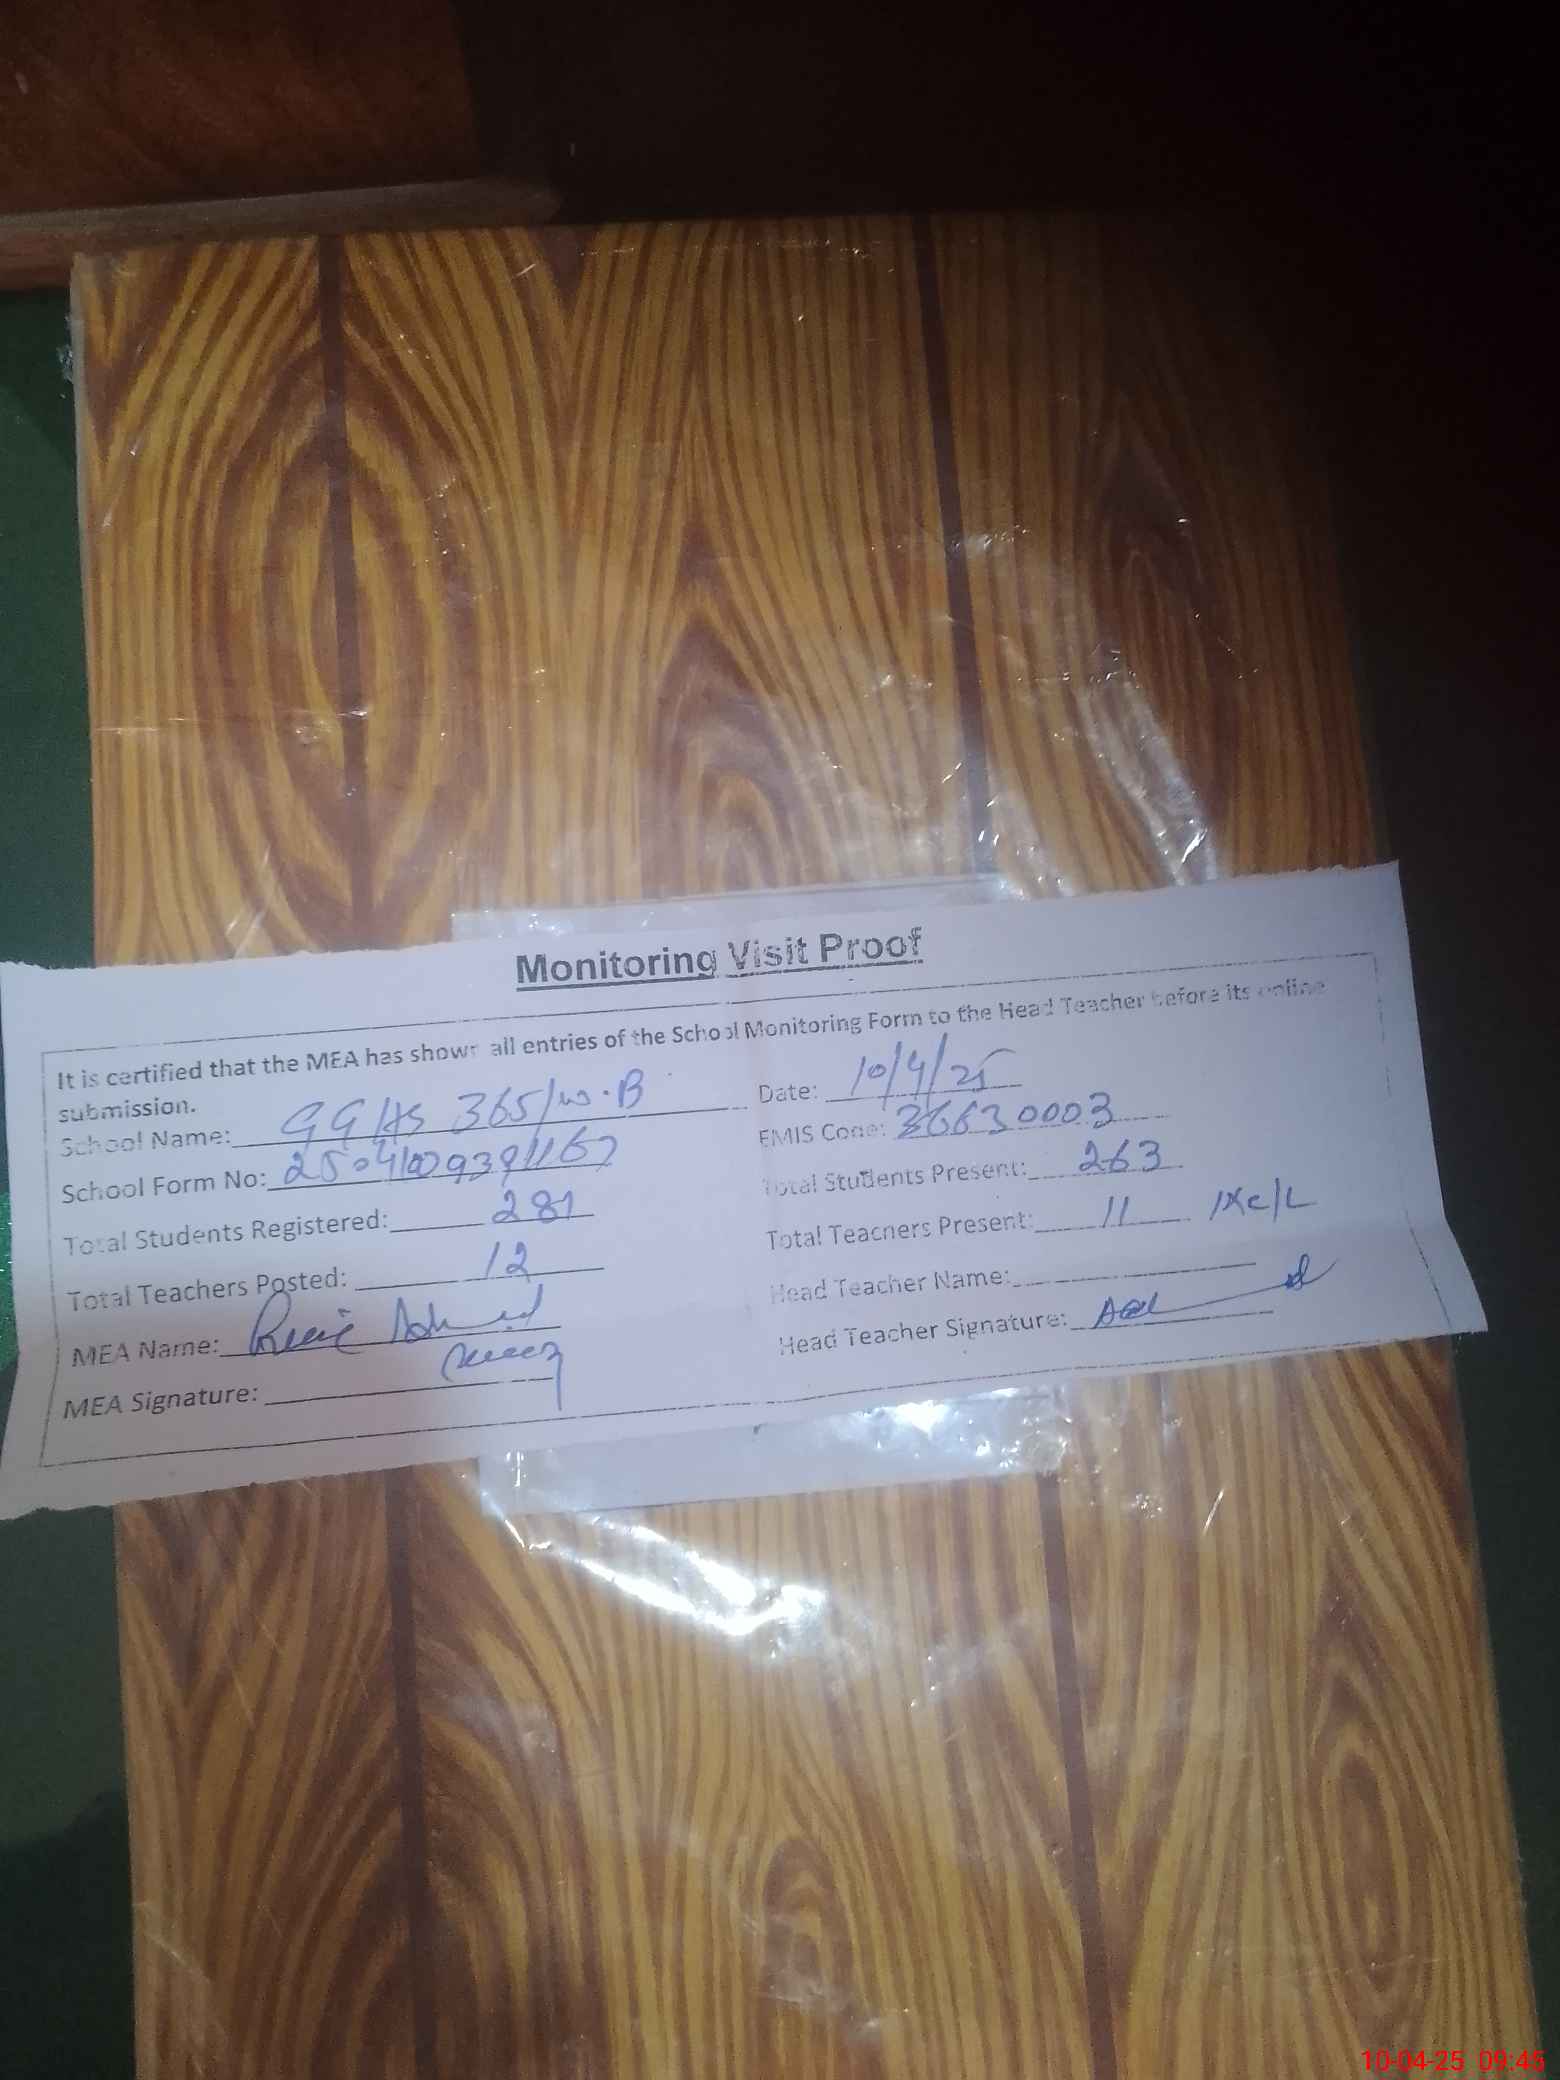 Monitoring Visit Proof
It is certified that the MEA has shown all entries of the School Monitoring Form to the Head Teacher before its online
submission.
School Name: GGHS 365/W.B
Date: 10/4/25
School Form No: 
EMIS Code: 36630003
Total Students Registered: 281
Total Students Present: 263
Total Teachers Posted: 12
Total Teachers Present: 11 1xc/L
MEA Name: Ahmed
Head Teacher Name:
MEA Signature:
Head Teacher Signature:
10-04-25 09:45